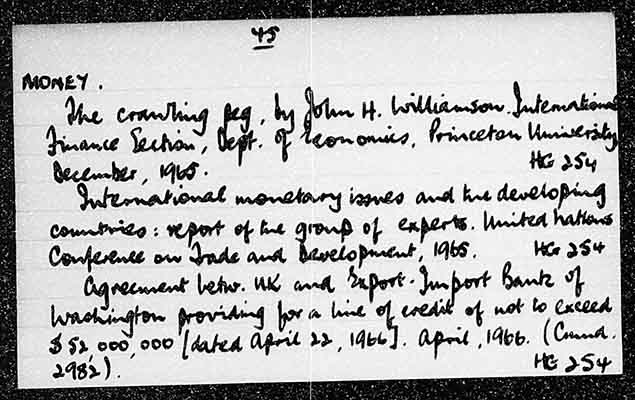 45
MONEY.
The crawling peg, by John H. Williamson. International
Finance Section, Dept. of Economics, Princeton University
December, 1965.
HG 254
International monetary issues and the developing
countries: report of the group of experts. United Nations
Conference on Trade and Development, 1965. HG 254
Agreement betw. UK and Export-Import Bank of
Washington providing for a line of credit of not to exceed
$52,000,000 [dated April 22, 1966]. April, 1966. (Cmnd.
2982). HG 254